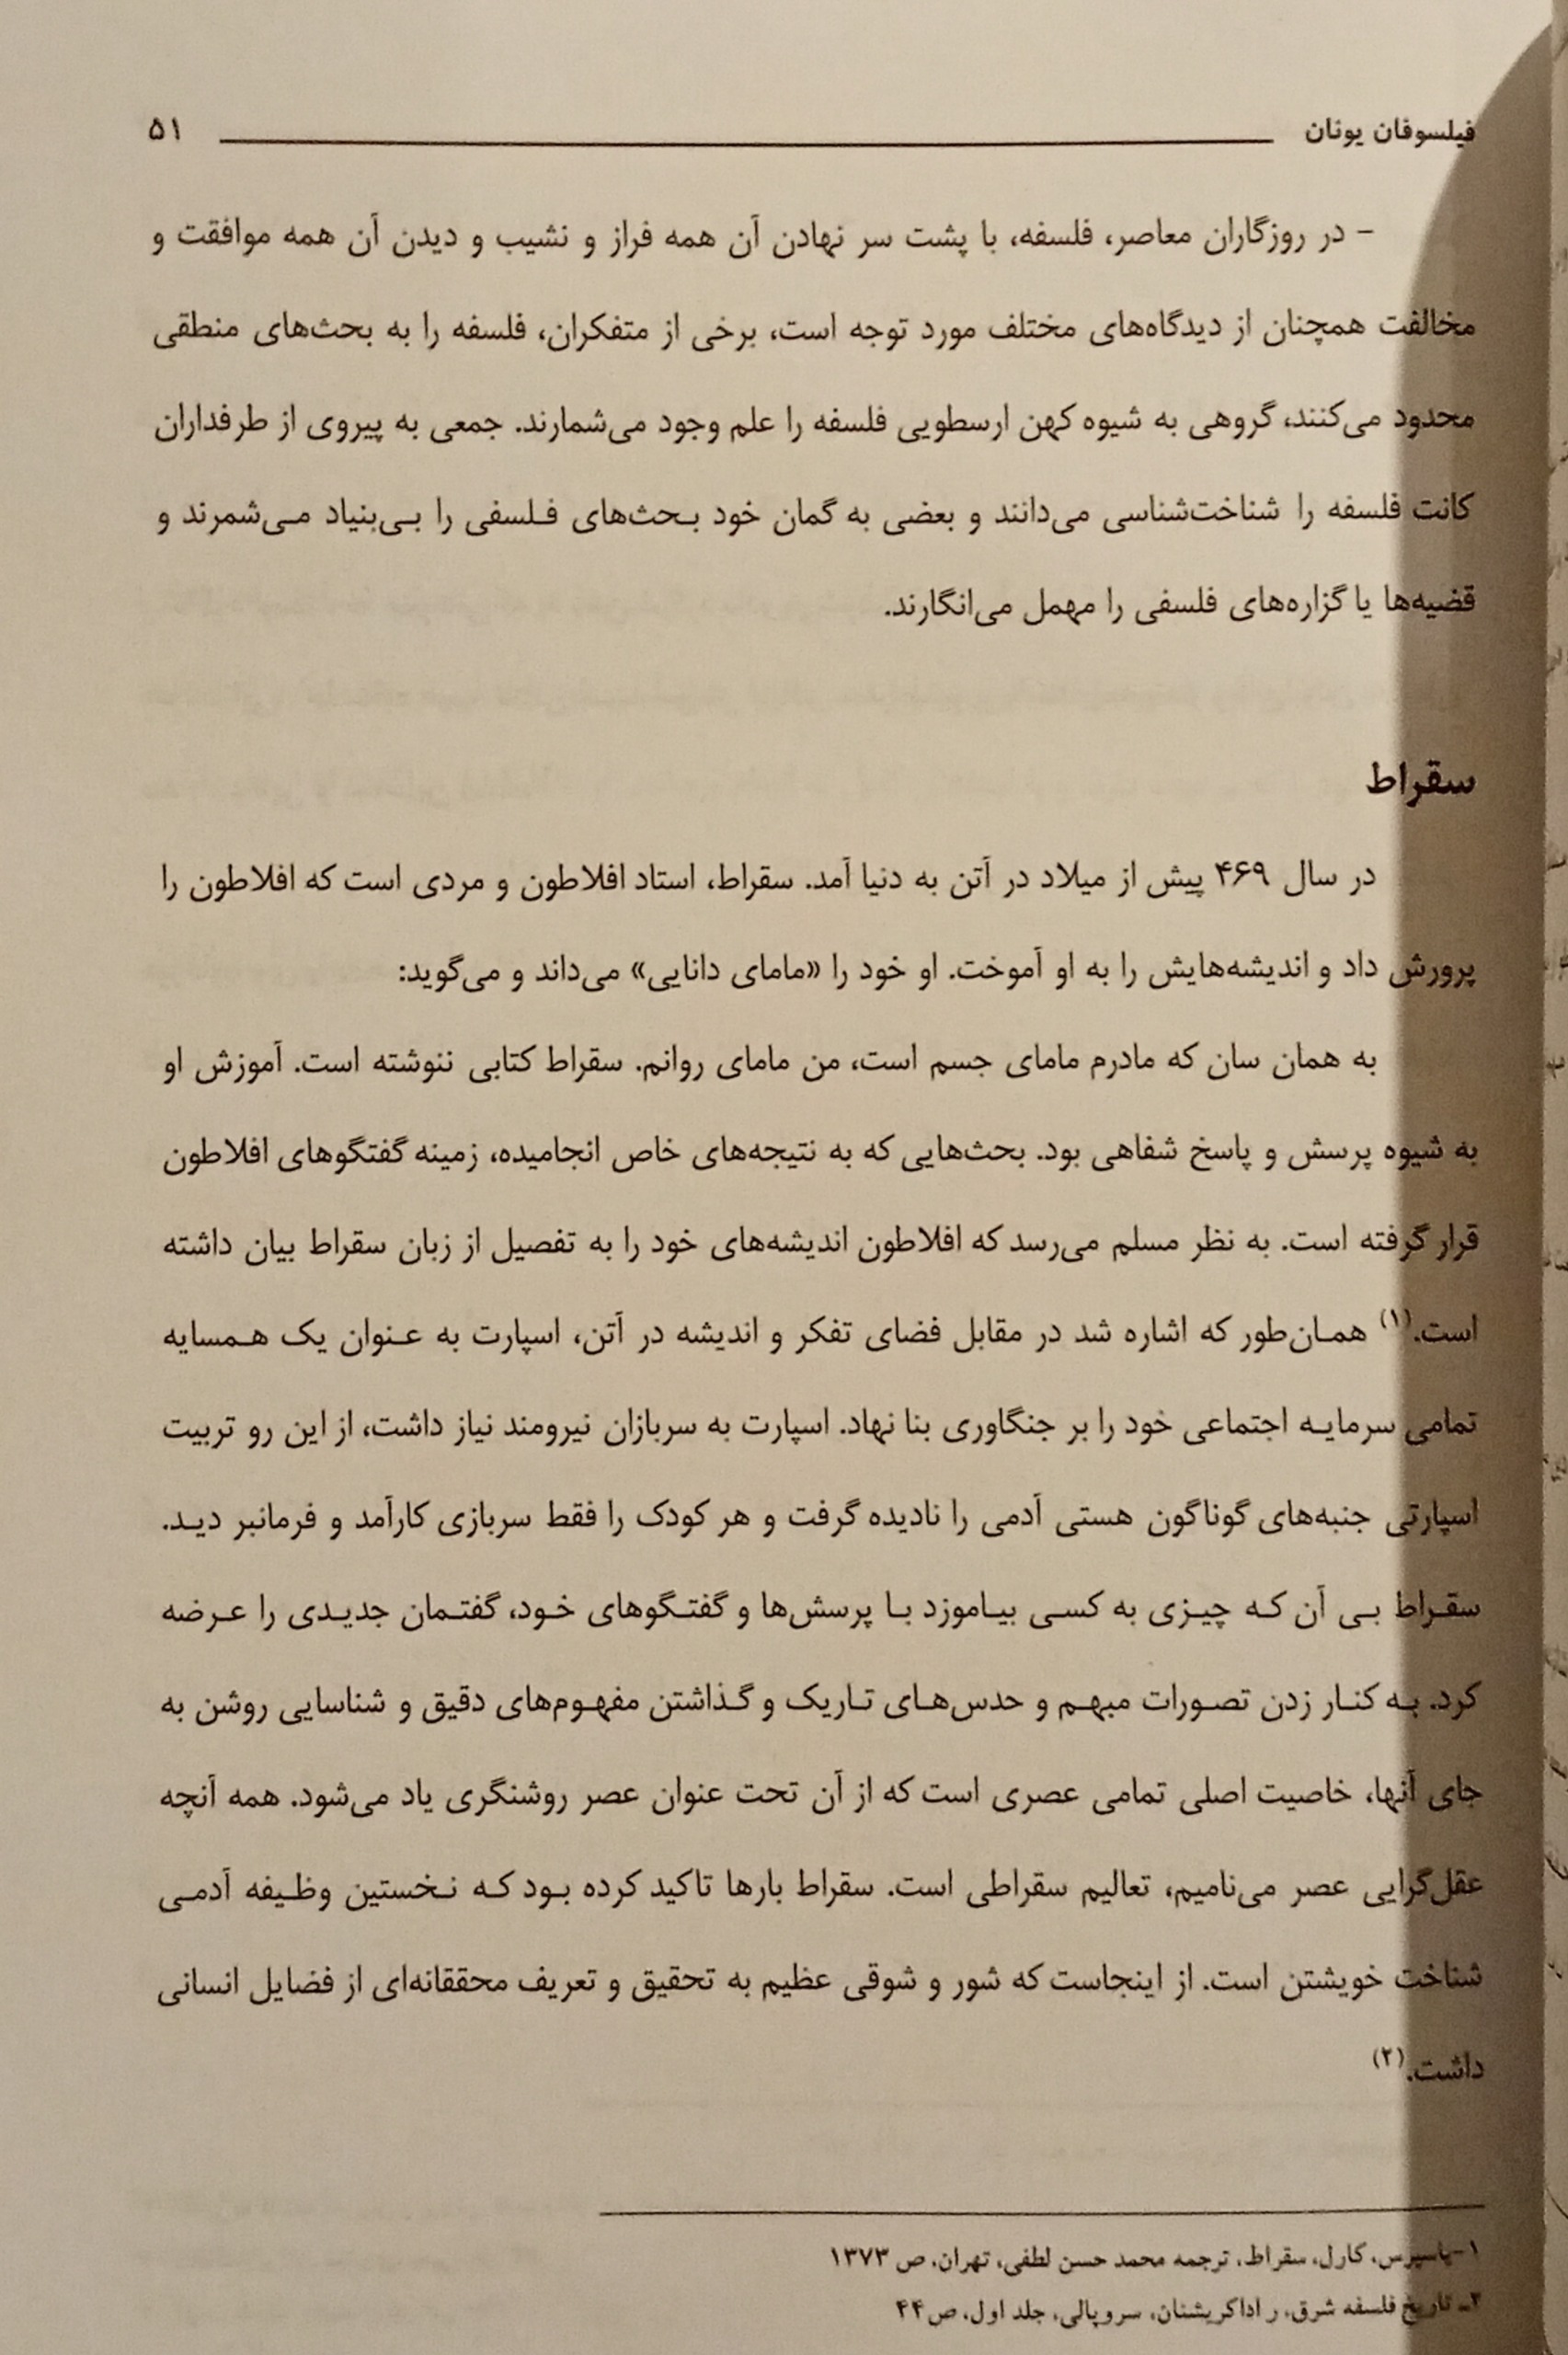 فیلسوفان یونان ۵۱
- در روزگاران معاصر، فلسفه، با پشت سر نهادن آن همه فراز و نشیب و دیدن آن همه موافقت و
مخالفت همچنان از دیدگاه‌های مختلف مورد توجه است، برخی از متفکران، فلسفه را به بحث‌های منطقی
محدود می‌کنند، گروهی به شیوه کهن ارسطویی فلسفه را علم وجود می‌شمارند. جمعی به پیروی از طرفداران
کانت فلسفه را شناخت‌شناسی می‌دانند و بعضی به گمان خود بحث‌های فلسفی را بی‌بنیاد می‌شمرند و
قضیه‌ها یا گزاره‌های فلسفی را مهمل می‌انگارند.
سقراط
در سال ۴۶۹ پیش از میلاد در آتن به دنیا آمد. سقراط، استاد افلاطون و مردی است که افلاطون را
پرورش داد و اندیشه‌هایش را به او آموخت. او خود را «مامای دانایی» می‌داند و می‌گوید:
به همان سان که مادرم مامای جسم است، من مامای روانم. سقراط کتابی ننوشته است. آموزش او
به شیوه پرسش و پاسخ شفاهی بود. بحث‌هایی که به نتیجه‌های خاص انجامیده، زمینه گفتگوهای افلاطون
قرار گرفته است. به نظر مسلم می‌رسد که افلاطون اندیشه‌های خود را به تفصیل از زبان سقراط بیان داشته
است.(۱) همان‌طور که اشاره شد در مقابل فضای تفکر و اندیشه در آتن، اسپارت به عنوان یک همسایه
تمامی سرمایه اجتماعی خود را بر جنگاوری بنا نهاد. اسپارت به سربازان نیرومند نیاز داشت، از این رو تربیت
اسپارتی جنبه‌های گوناگون هستی آدمی را نادیده گرفت و هر کودک را فقط سربازی کارآمد و فرمانبر دید.
سقراط بی آن که چیزی به کسی بیاموزد با پرسش‌ها و گفتگوهای خود، گفتمان جدیدی را عرضه
کرد. به کنار زدن تصورات مبهم و حدس‌های تاریک و گذاشتن مفهوم‌های دقیق و شناسایی روشن به
جای آنها، خاصیت اصلی تمامی عصری است که از آن تحت عنوان عصر روشنگری یاد می‌شود. همه آنچه
عقل‌گرایی عصر می‌نامیم، تعالیم سقراطی است. سقراط بارها تاکید کرده بود که نخستین وظیفه آدمی
شناخت خویشتن است. از اینجاست که شور و شوقی عظیم به تحقیق و تعریف محققانه‌ای از فضایل انسانی
داشت.(۲)
۱-یاسپرس، کارل، سقراط، ترجمه محمد حسن لطفی، تهران، ص ۱۳۷۳
۲ـ تاریخ فلسفه شرق، ر اداکریشنان، سروپالی، جلد اول، ص ۴۴